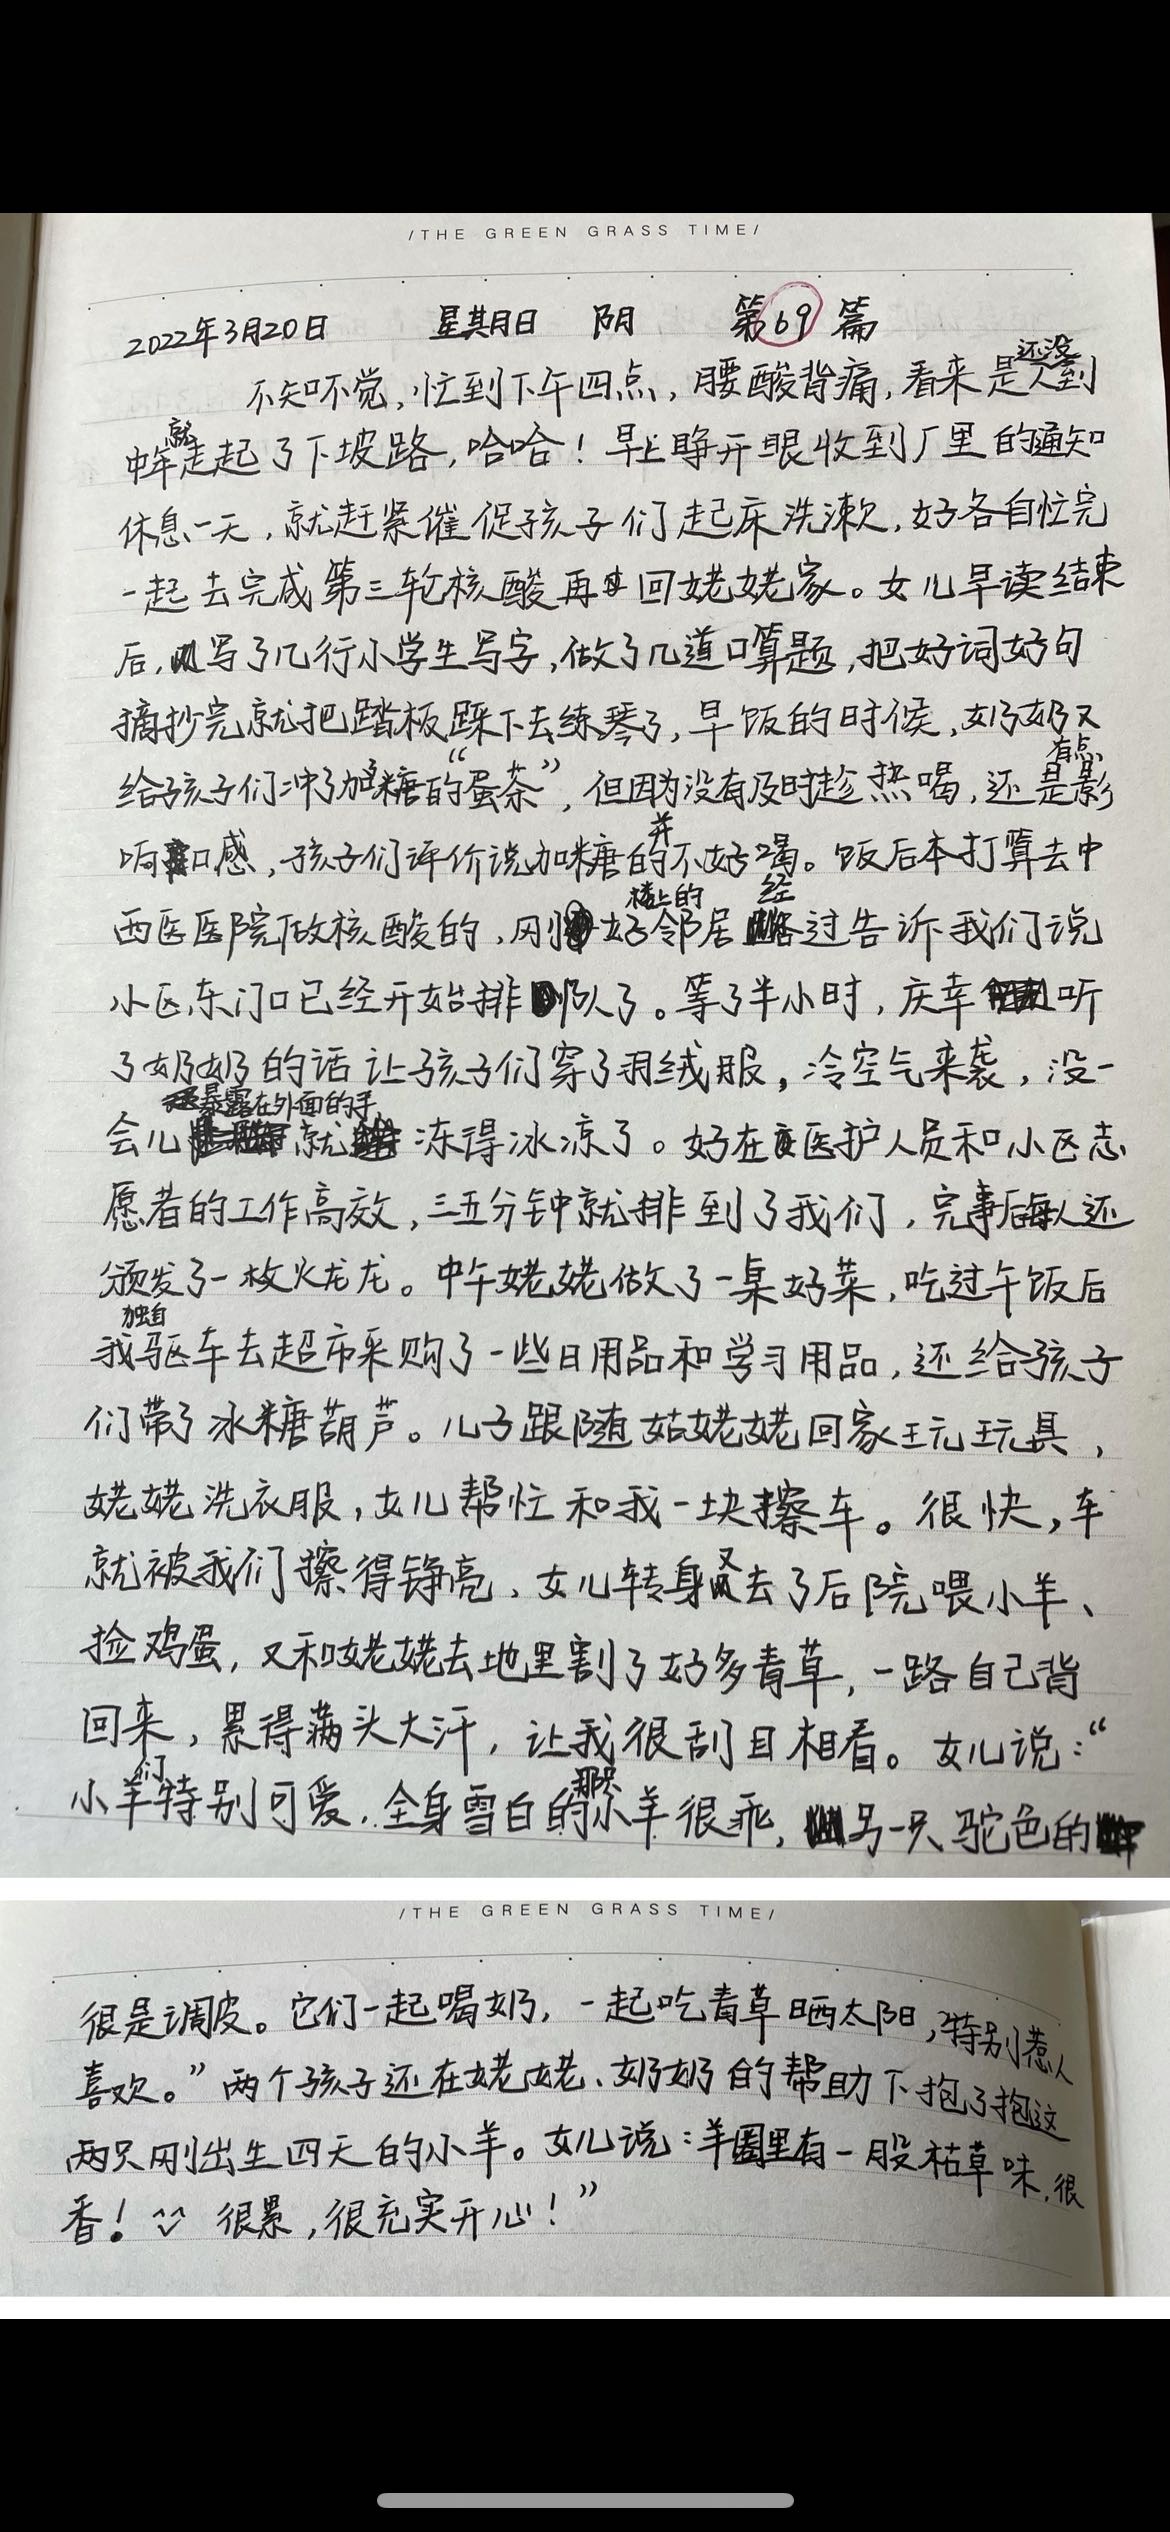 /THE GREEN GRASS TIME/
2022年3月20日 星期日 阴 第69篇
不知不觉,忙到下午四点,腰酸背痛,看来是人还没到
中年就走起了下坡路,哈哈!早上睁开眼收到厂里的通知
休息一天,就赶紧催促孩子们起床洗漱,好各自忙完
一起去完成第三轮核酸再回姥姥家。女儿早读结束
后,写了几行小学生写字,做了几道口算题,把好词好句
摘抄完就把踏板踩下去练琴了,早饭的时候,奶奶又
给孩子们冲了加了糖的“蛋茶”,但因为没有及时趁热喝,还是有点影
响口感,孩子们评价说加糖的并不好喝。饭后本打算去中
西医医院做核酸的,刚好楼上的邻居经过告诉我们说
小区东门口已经开始排队了。等了半小时,庆幸听
了奶奶的话让孩子们穿了羽绒服,冷空气来袭,没一
会儿暴露在外面的手就冻得冰凉了。好在医护人员和小区志
愿者的工作高效,三五分钟就排到了我们,完事后每人还
颁发了一枚火龙龙。中午姥姥做了一桌好菜,吃过午饭后
我独自驱车去超市采购了一些日用品和学习用品,还给孩子
们带了冰糖葫芦。儿子跟随姑姥姥回家玩玩具,
姥姥洗衣服,女儿帮忙和我一块擦车。很快,车
就被我们擦得铮亮,女儿转身又去了后院喂小羊、
捡鸡蛋,又和姥姥去地里割了好多青草,一路自己背
回来,累得满头大汗,让我很刮目相看。女儿说:“
小羊们特别可爱,全身雪白的那只小羊很乖,另一只驼色的
/THE GREEN GRASS TIME/
很是调皮。它们一起喝奶,一起吃青草晒太阳,特别惹人
喜欢。”两个孩子还在姥姥、奶奶的帮助下抱了抱这
两只刚出生四天的小羊。女儿说:羊圈里有一股枯草味,很
香! 很累,很充实开心!”